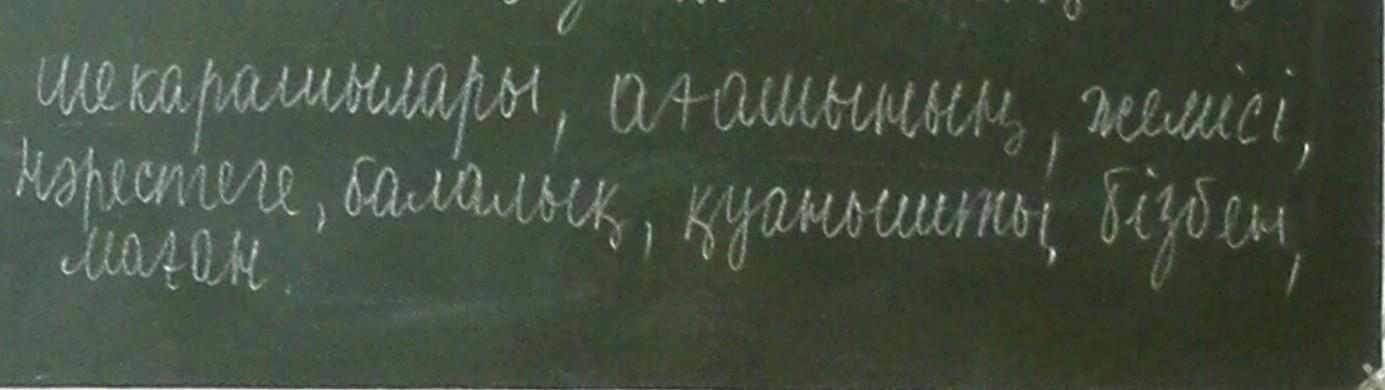 шекарашылары, ағашының, жемісі,
нәрестеге, балалық, қуанышты, бізбен,
маған.